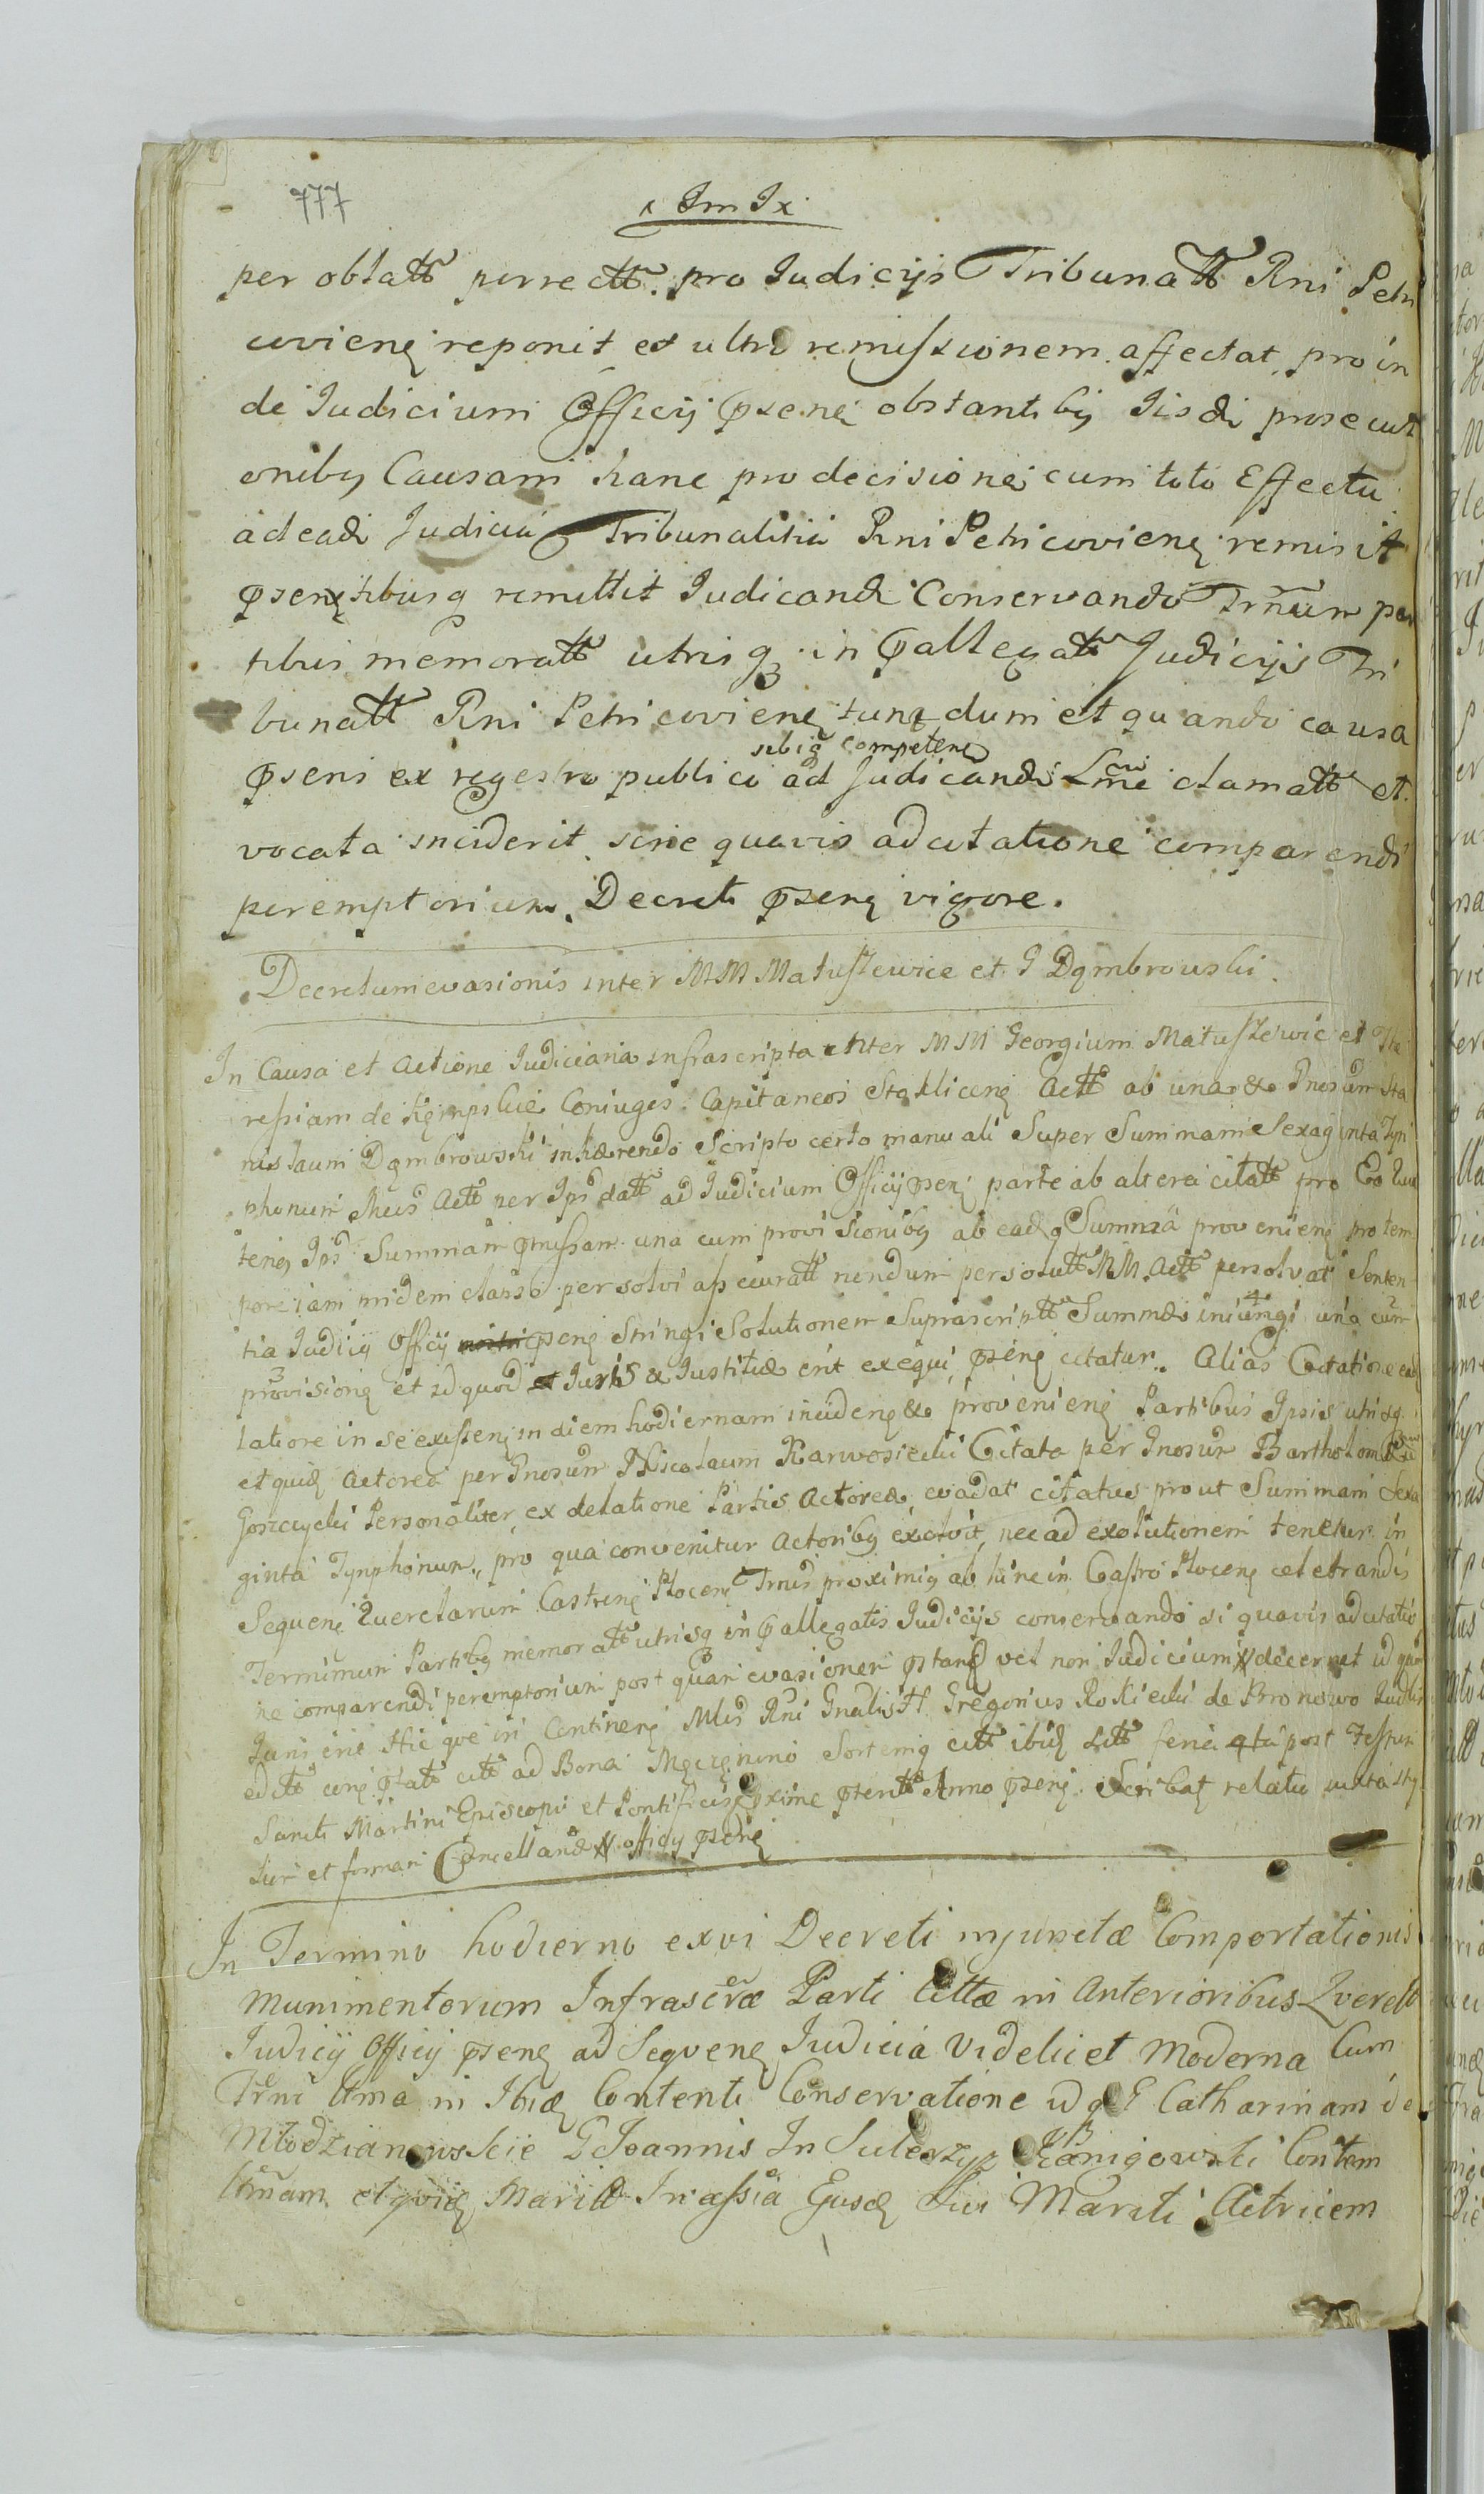 777
x Im Ix
per oblatt perrectt. pro Judicijs Tribunatt Rni Petri
covieng reponit et ultro remissionem affectat, pro in
de Judicium Officij pseng obstantiby Iisdi prosecuti
oniby Causam hanc pro decisione cum toto Effectu
ad eadi Judicia Tribunalitia Rni Petricovieng remisit
psengtibusq remittit Judicandi Conservando Trnum par
tibus memoratt utrisq in pallegatt Judicijs Tri
bunatt Rni Petricovieng tunq dum et quando causa
sibiq competeng
psens ex regestro publico ad Judicandi Lme clamatt et
vocata inciderit sine quavis adcitatione comparendi
peremptorium. Decreti pseng vigore.
Decretum evasionis inter MM Matuszewice et G Dąmbrowski.
In Causa et Actione Judiciaria infrascripta inter MM Georgium Matuszewic et The
ressiam de Kęmpskie Coniuges Capitaneos Stokliceng Actt ab una & Gnosum Sta
nislaum Dąmbrowski inhærendo Scripto certo manuali Super Summam Sexaginta Tyn
phonum Mus Actt per Ips datt ad Judicium Officij pseng parte ab altera citatt pro Eo qua
teng Ips Summam pmissam una cum provisioniby ab eadq Summa provenieng pro tem
pore iam pridem elapso persolvi assecuratt nendum persolutt MM Actt persolvat Senten
tia Judicij Officij pseng Stringi Solutionem Suprascriptt Summæ iniungi una cum
provisione et id quod Juris & Justitiæ erit exequi pseng citatur. Alias Citatione ea
latiore in se existeng in diem hodiernam incideng & provenieng Partibus Ipsis utrisq
et quidq Actorea per Gnosum Nicolaum Karwosiecki Citata per Gnosum Bartholomeum
Goszczycki Personaliter, ex delatione Partis Actoreæ, evadat citatus prout Summam Sexa
ginta Tynphonum, pro qua convenitur Actoriby exolvit, nec ad exolutionem tenetur in
Sequeng Querelarum Castreng Ploceng Trnis proximiq ab hinc in Castro Ploceng celebrandis
Terminum Partiby memoratt utrisq in pallegatis Judicijs conservando si quavis adcitatio
ne comparendi peremptorium post quam evasionem pstand vel non Judicium decernet id quod
Juris erit Hic que in Contineng Mlis Rni Gnalis H. Gregorius Rokicki de Bronowo Judlis
edtt ceng pstatt citt ad Bona Męczenino Sortemq citt ibidq Sitt feria qta post Festum
Sancti Martini Episcopi et Pontificis pxime pteritt Anno pseng. Scribaq relatu juxta sty
lum et formam Cancellariæ officij pseng
In Termino hodierno ex vi Decreti injunctæ Comportationis
munimentorum Infrascræ Parti Cittæ in Anterioribus Querelt
Judicij Officij pseng ad Sequeng Judicia Videlicet Moderna Cum
Trni Ama in Ibidq Contenti Conservatione id q G Catharinam de
Młodzianowskie G Joannis In Suleszyq Kanigowski Contem
Amam et quidq Maritt In assia Ejusdq Sui Mariti Actricem